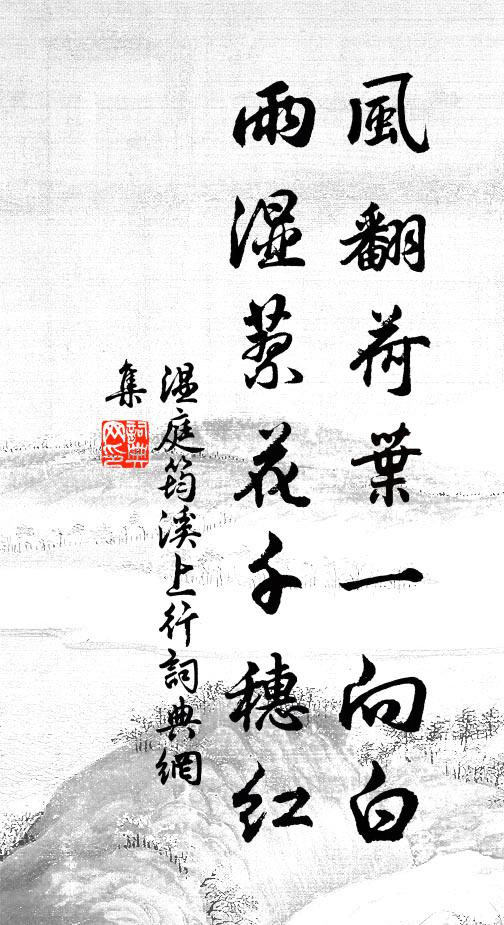 風翻荷葉一向白
雨濕蓼花千穗紅
温庭筠溪上行詞典網
集